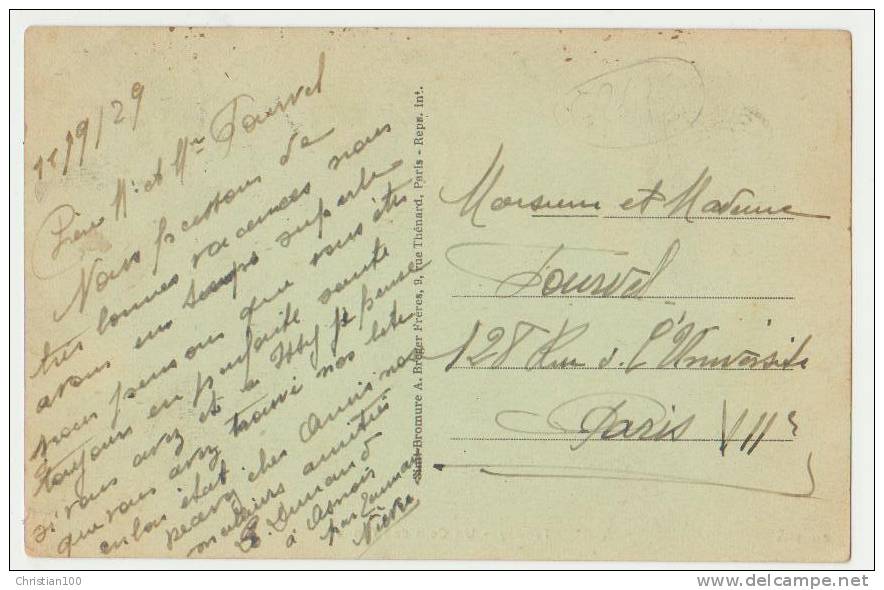 11/9/29
Mr et Mme Tourvel
Nous passons de
très bonnes vacances nous
avons un temps superbe
nous pensons que vous êtes
toujours en parfaite santé
si vous avez été a Issy je pense
que vous avez trouvé nos
en bon état
chers Amis nos
meilleurs amitiés
Dumand
à Asnois
par Tannay
Nièvre
Simi-Bromure A. Breger Frères, 9, rue Thénard, Paris - Repr. int.
Monsieur et Madame
Tourvel
128 Rue d. l'Université
Paris VIIe
Christian100
www.delcampe.net